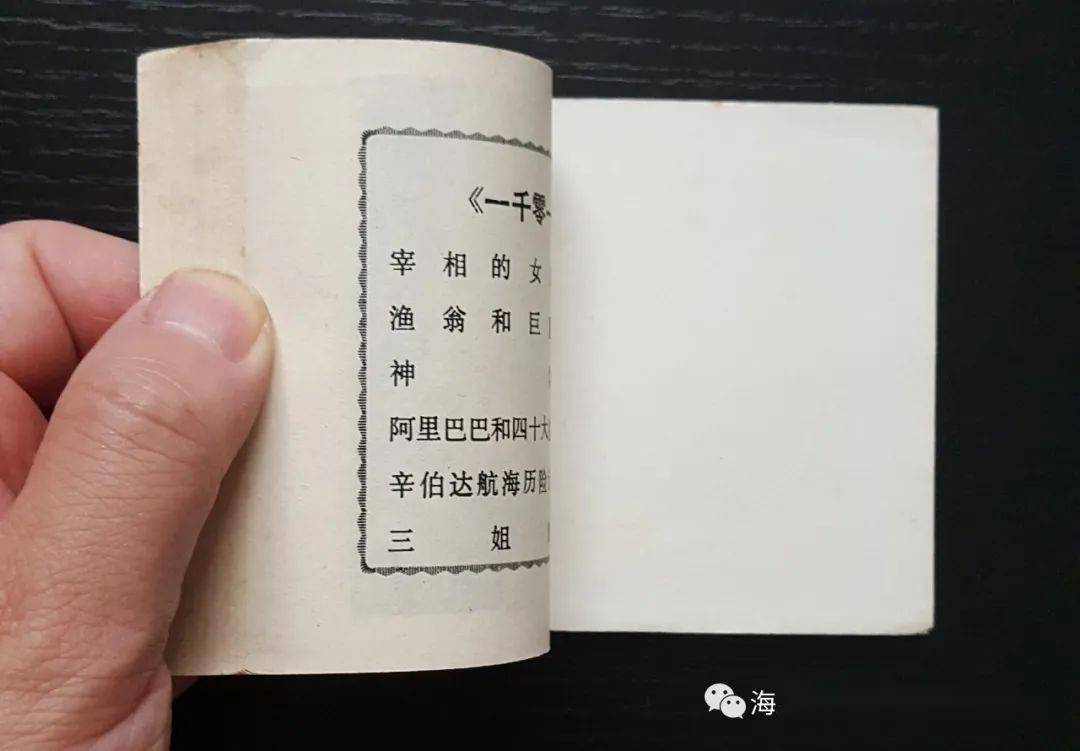 《一千零一
宰相的女
渔翁和巨
神
阿里巴巴和四十大
辛伯达航海历险
三姐
海